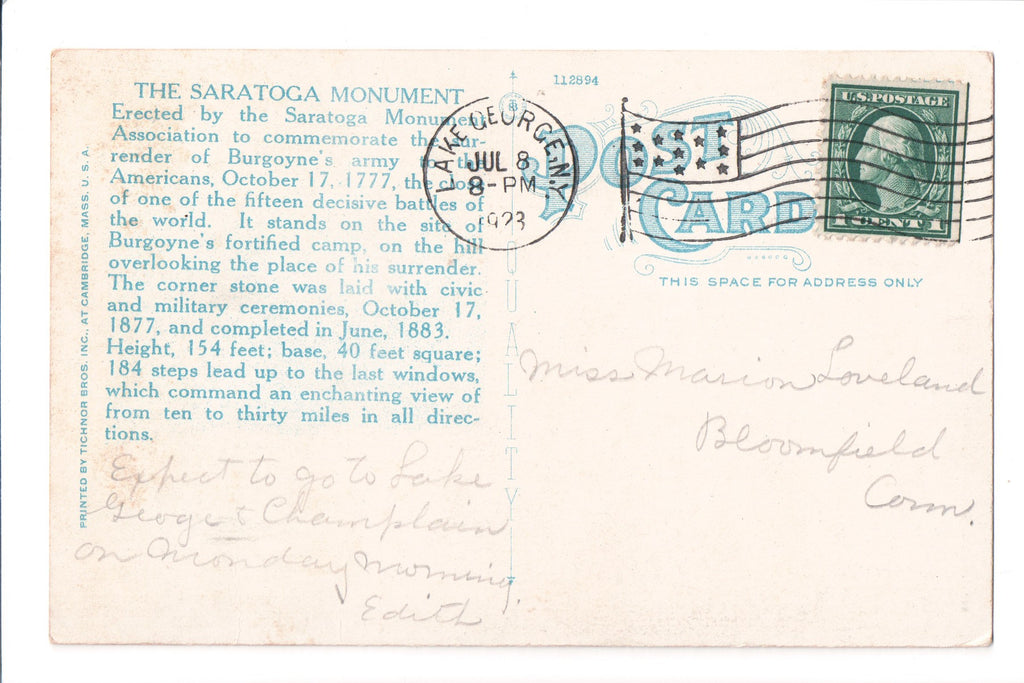 THE SARATOGA MONUMENT
Erected by the Saratoga Monument
Association to commemorate the sur-
render of Burgoyne's army to the
Americans, October 17, 1777, the close
of one of the fifteen decisive battles of
the world. It stands on the site of
Burgoyne's fortified camp, on the hill
overlooking the place of his surrender.
The corner stone was laid with civic
and military ceremonies, October 17,
1877, and completed in June, 1883.
Height, 154 feet; base, 40 feet square;
184 steps lead up to the last windows,
which command an enchanting view of
from ten to thirty miles in all direc-
tions.
Expect to go to Lake
George & Champlain
on Monday Morning.
Edith
PRINTED BY TICHNOR BROS. INC., AT CAMBRIDGE, MASS. U. S. A.
QUALITY
112894
POST
CARD
LAKE GEORGE, N.Y.
JUL 8
8-PM
1923
U.S. POSTAGE
1 CENT 1
THIS SPACE FOR ADDRESS ONLY
Miss Marion Loveland
Bloomfield
Conn.